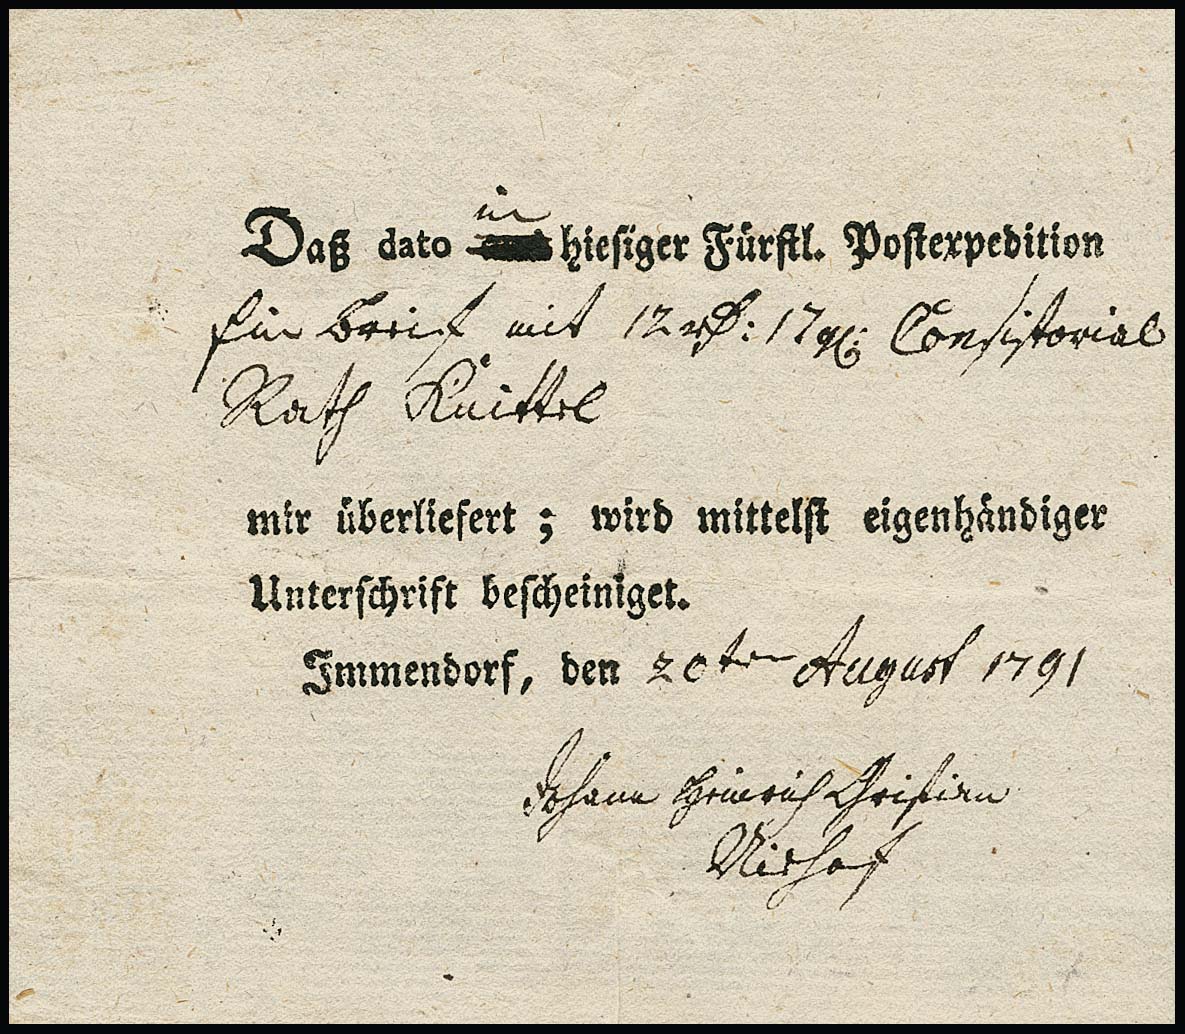 in
Daß dato hiesiger Fürstl. Postexpedition
Ein Brief mit 12 rth: 17 gg: Consistorial
Rath Knittel
mir überliefert; wird mittelst eigenhändiger
Unterschrift bescheiniget.
Immendorf, den 20ten August 1791
Johann Heinrich Christian